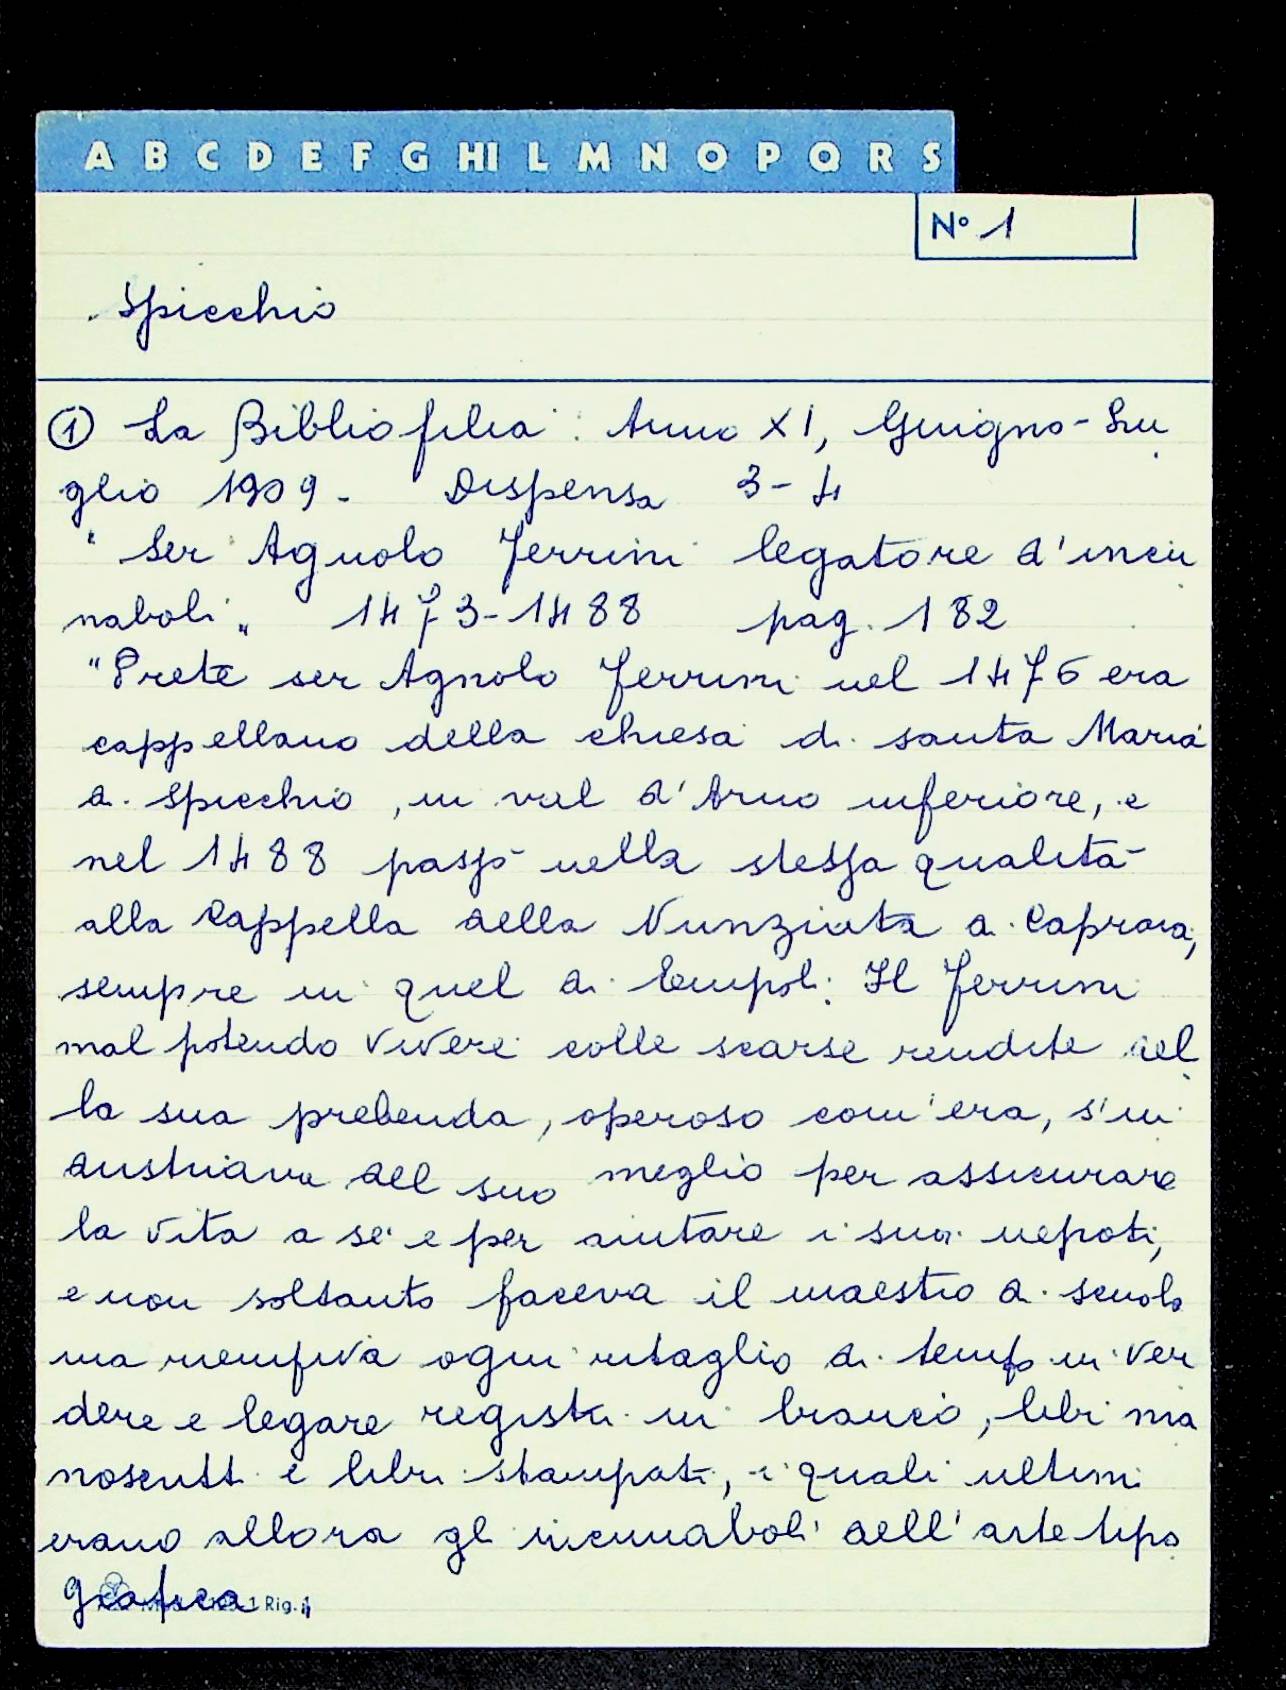 A B C D E F G HI L M N O P Q R S
N° 1
Spicchio
① La Bibliofilia: Anno XI, Giugno-Lu
glio 1909. Dispensa 3-4
"Ser Agnolo Ferrini legatore d'incu
naboli" 1473-1488 pag. 182
"Prete ser Agnolo Ferrini nel 1476 era
cappellano della chiesa di santa Maria
a Spicchio, in val d'Arno inferiore, e
nel 1488 passò nella stessa qualità
alla Cappella della Nunziata a Capraia,
sempre in quel di Empoli. Il Ferrini
mal potendo vivere colle scarse rendite del
la sua prebenda, operoso com'era, s'in
dustriava del suo meglio per assicurare
la vita a sé e per aiutare i suoi nepoti,
e non soltanto faceva il maestro di scuola
ma riempiva ogni ritaglio di tempo in ven
dere e legare registri in bianco, libri ma
noscritti e libri stampati, i quali ultimi
erano allora gli incunaboli dell'arte tipo
grafica
1 Rig.